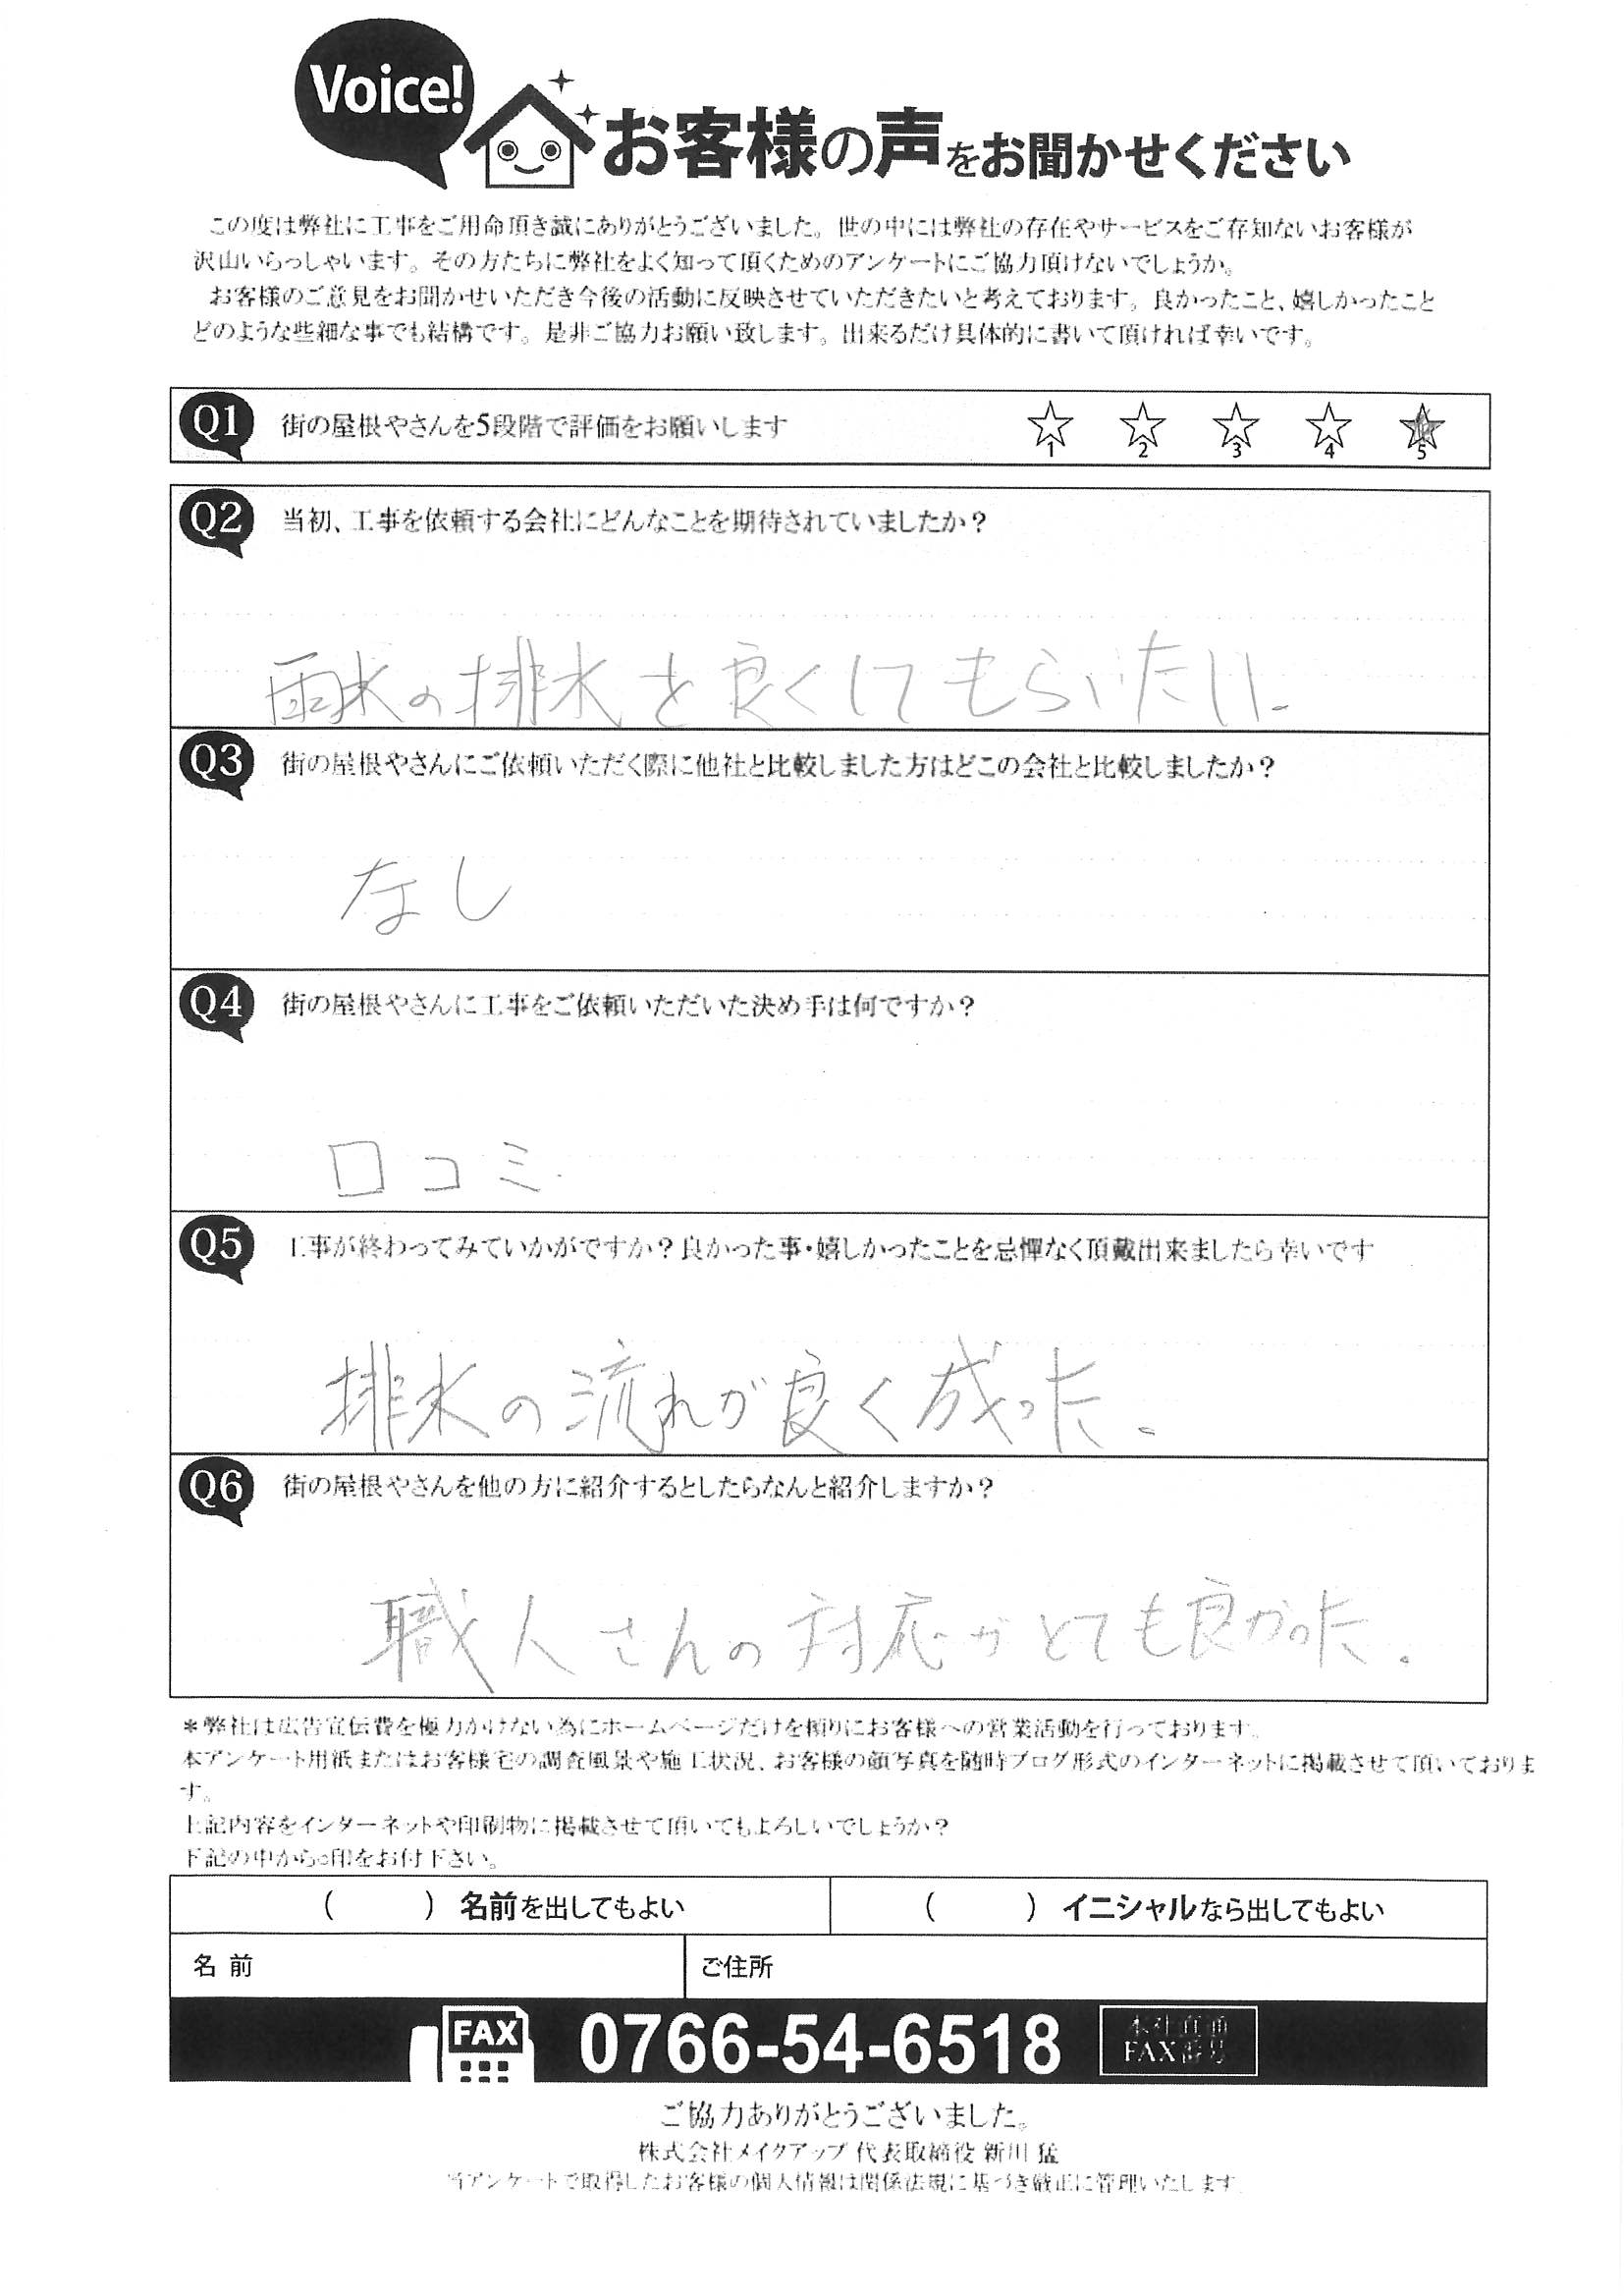 Voice!
お客様の声をお聞かせください
この度は弊社に工事をご用命頂き誠にありがとうございました。世の中には弊社の存在やサービスをご存知ないお客様が
沢山いらっしゃいます。その方たちに弊社をよく知って頂くためのアンケートにご協力頂けないでしょうか。
お客様のご意見をお聞かせいただき今後の活動に反映させていただきたいと考えております。良かったこと、嬉しかったこと
どのような些細な事でも結構です。是非ご協力お願い致します。出来るだけ具体的に書いて頂ければ幸いです。
Q1 街の屋根やさんを5段階で評価をお願いします 1 2 3 4 5
Q2 当初、工事を依頼する会社にどんなことを期待されていましたか?
雨水の排水を良くしてもらいたい。
Q3 街の屋根やさんにご依頼いただく際に他社と比較しました方はどこの会社と比較しましたか?
なし
Q4 街の屋根やさんに工事をご依頼いただいた決め手は何ですか?
口コミ
Q5 工事が終わってみていかがですか?良かった事・嬉しかったことを忌憚なく頂戴出来ましたら幸いです
排水の流れが良く成った。
Q6 街の屋根やさんを他の方に紹介するとしたらなんと紹介しますか?
職人さんの対応がとても良かった。
*弊社は広告宣伝費を極力かけない為にホームページだけを頼りにお客様への営業活動を行っております。
本アンケート用紙またはお客様宅の調査風景や施工状況、お客様の顔写真を随時ブログ形式のインターネットに掲載させて頂いておりま
す。
上記内容をインターネットや印刷物に掲載させて頂いてもよろしいでしょうか?
下記の中から○印をお付下さい。
( ) 名前を出してもよい ( ) イニシャルなら出してもよい
名前 ご住所
FAX 0766-54-6518 本社直通
FAX番号
ご協力ありがとうございました。
株式会社メイクアップ 代表取締役 新川 猛
当アンケートで取得したお客様の個人情報は関係法規に基づき厳正に管理いたします